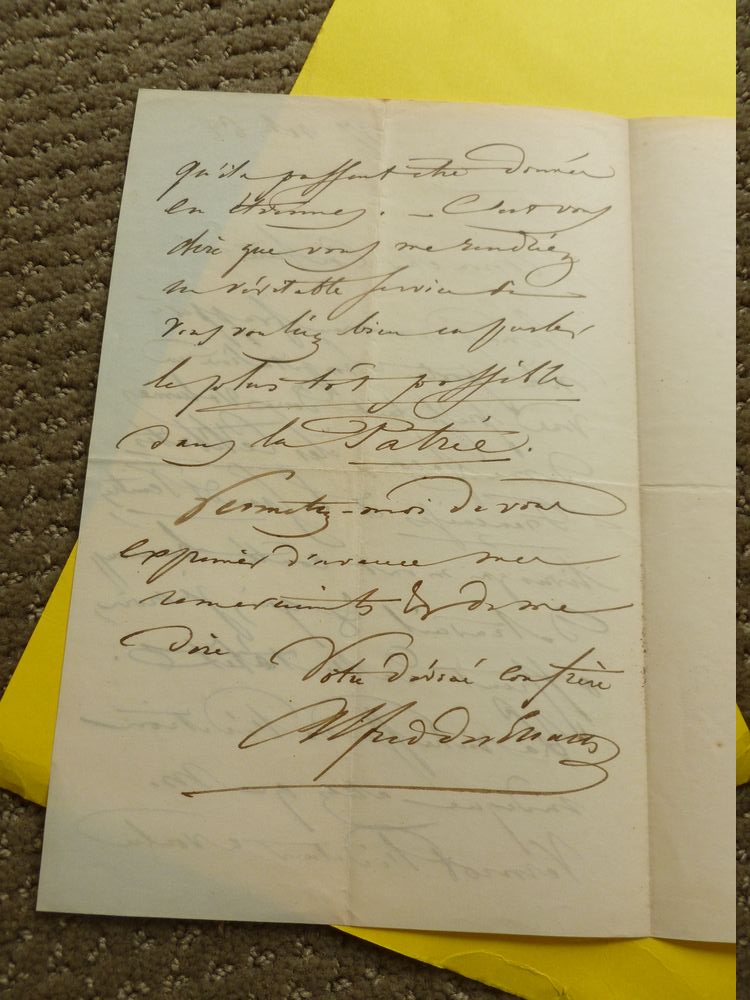 qu'ils puissent être donnés
en étrennes. — C'est vous
dire que vous me rendriez
un véritable service si
vous vouliez bien en parler
le plus tôt possible
dans la Patrie.
Permettez-moi de vous
exprimer d'avance mes
remerciments & de me
dire
Votre dévoué confrère
Alfred des Essarts